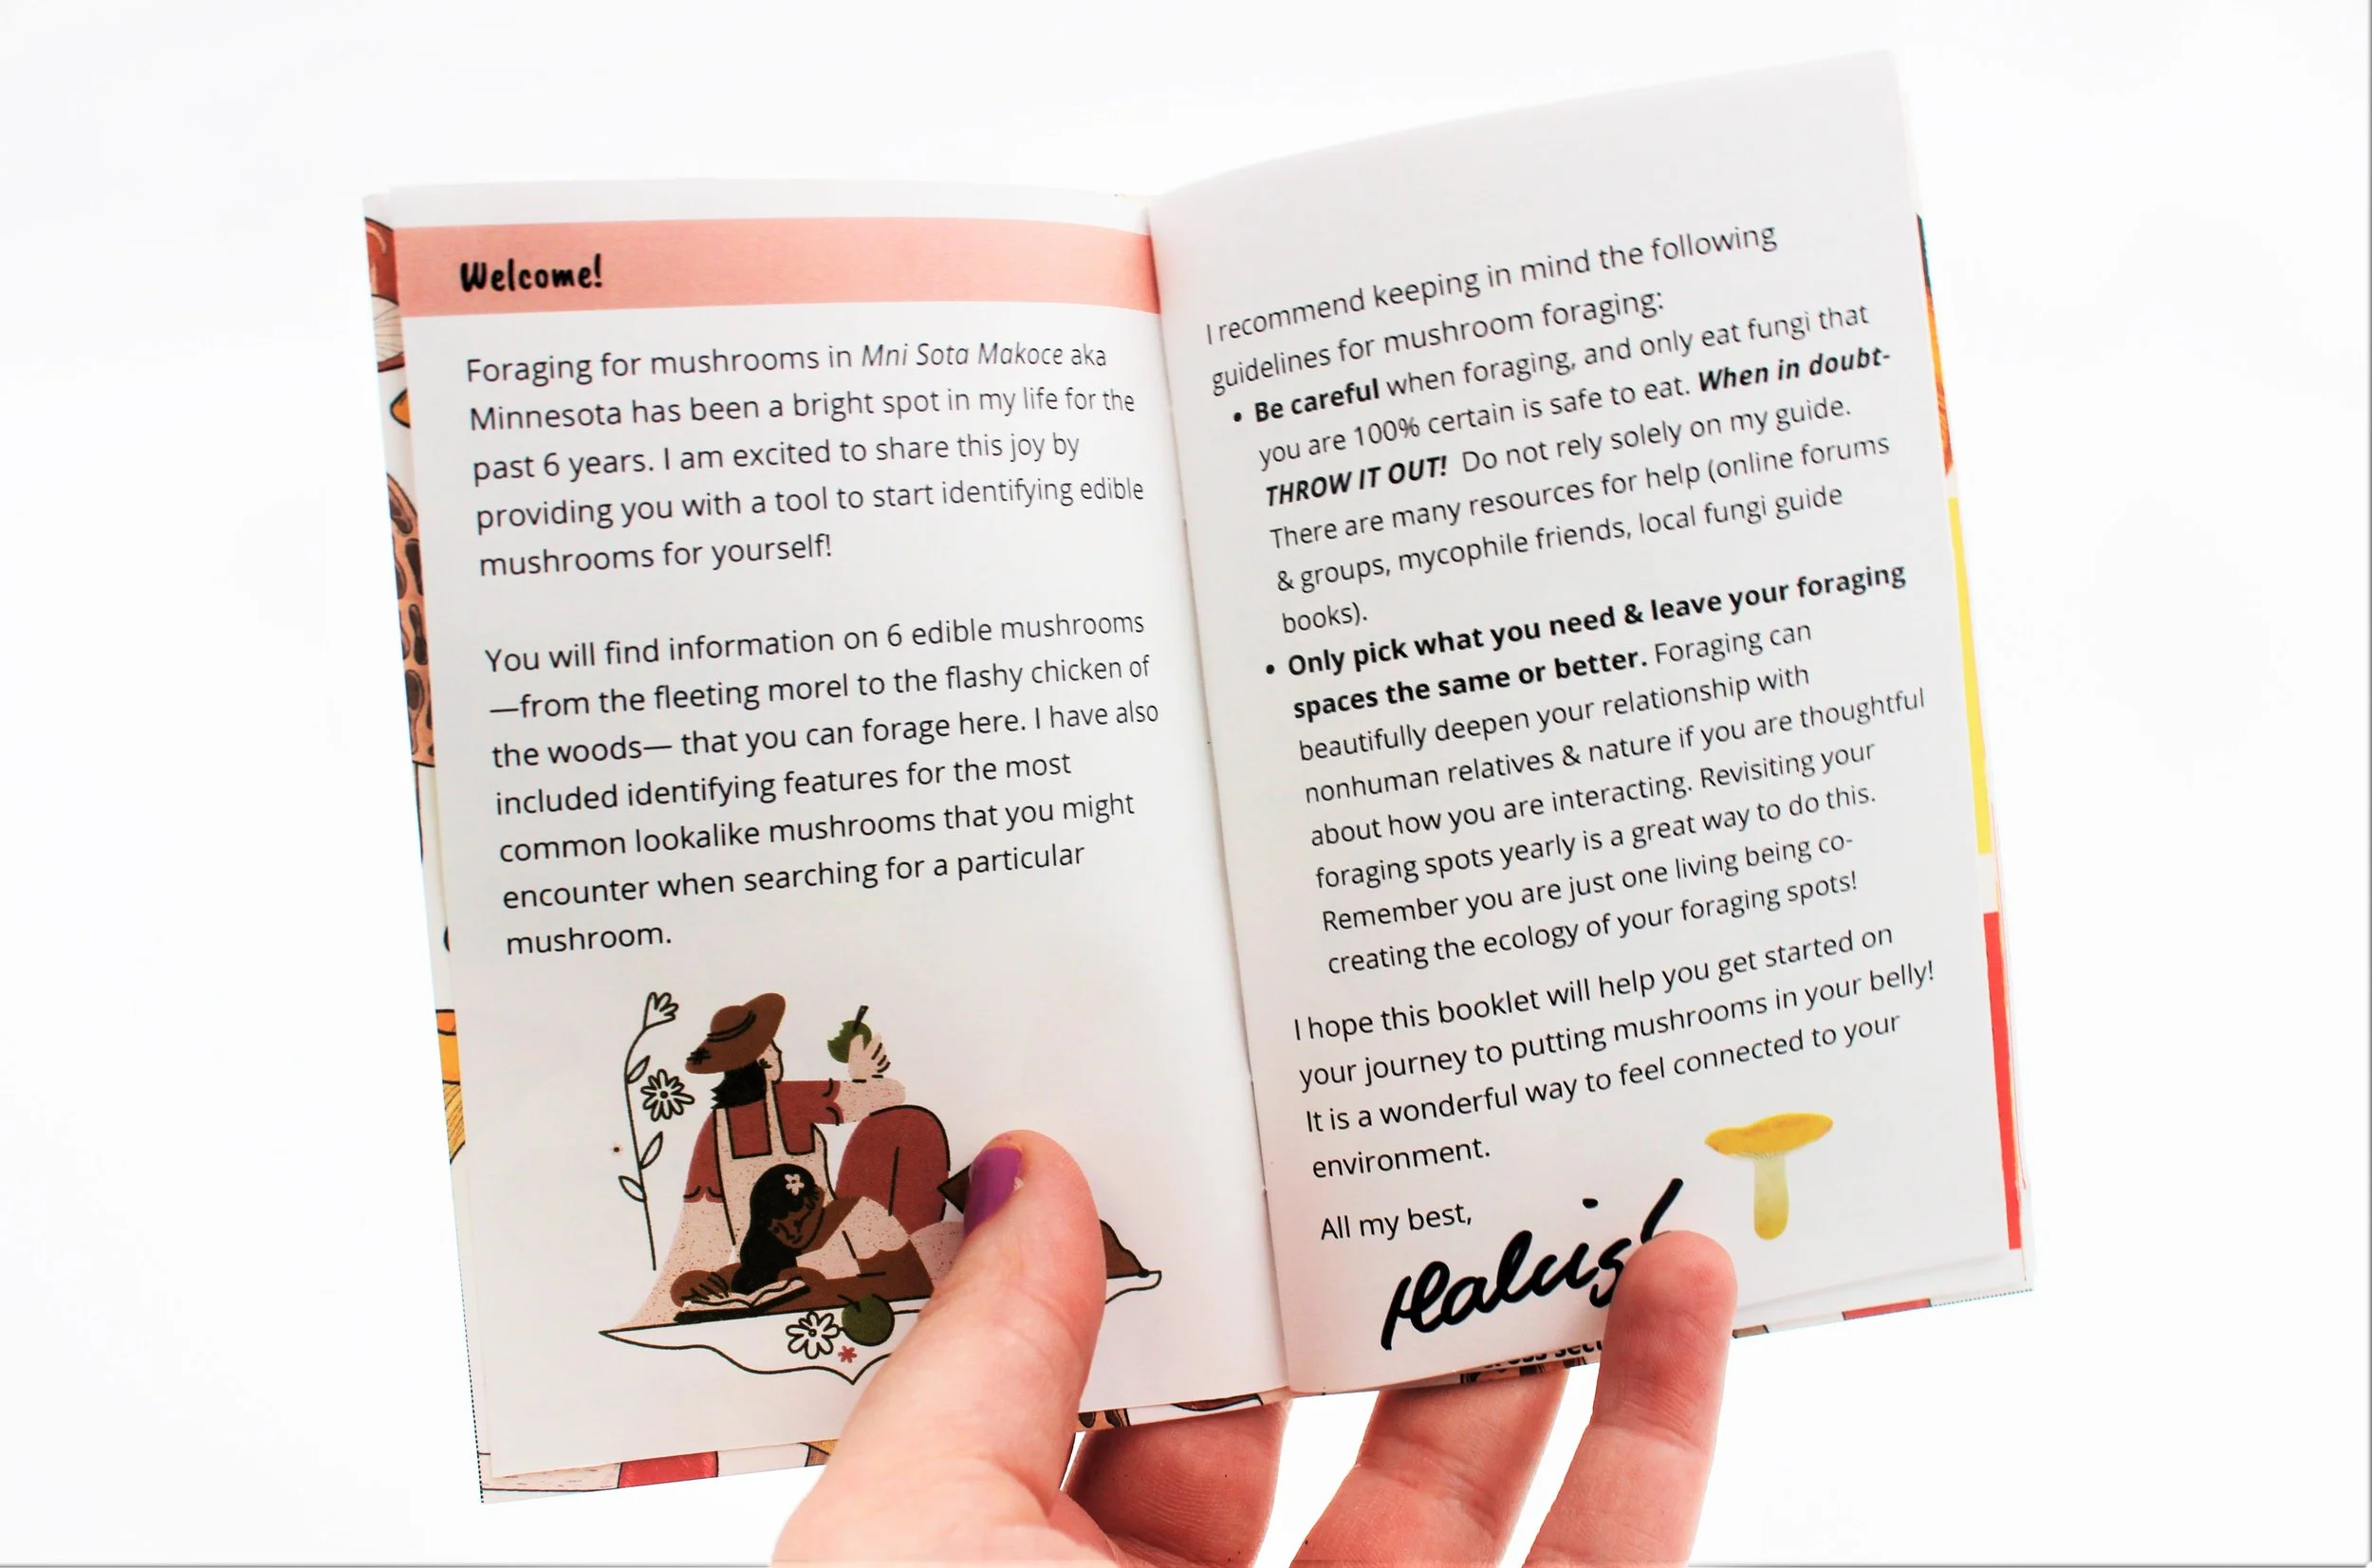 Welcome!
Foraging for mushrooms in Mni Sota Makoce aka
Minnesota has been a bright spot in my life for the
past 6 years. I am excited to share this joy by
providing you with a tool to start identifying edible
mushrooms for yourself!
You will find information on 6 edible mushrooms
—from the fleeting morel to the flashy chicken of
the woods— that you can forage here. I have also
included identifying features for the most
common lookalike mushrooms that you might
encounter when searching for a particular
mushroom.
I recommend keeping in mind the following
guidelines for mushroom foraging:
• Be careful when foraging, and only eat fungi that
you are 100% certain is safe to eat. When in doubt-
THROW IT OUT! Do not rely solely on my guide.
There are many resources for help (online forums
& groups, mycophile friends, local fungi guide
books).
• Only pick what you need & leave your foraging
spaces the same or better. Foraging can
beautifully deepen your relationship with
nonhuman relatives & nature if you are thoughtful
about how you are interacting. Revisiting your
foraging spots yearly is a great way to do this.
Remember you are just one living being co-
creating the ecology of your foraging spots!
I hope this booklet will help you get started on
your journey to putting mushrooms in your belly!
It is a wonderful way to feel connected to your
environment.
All my best,